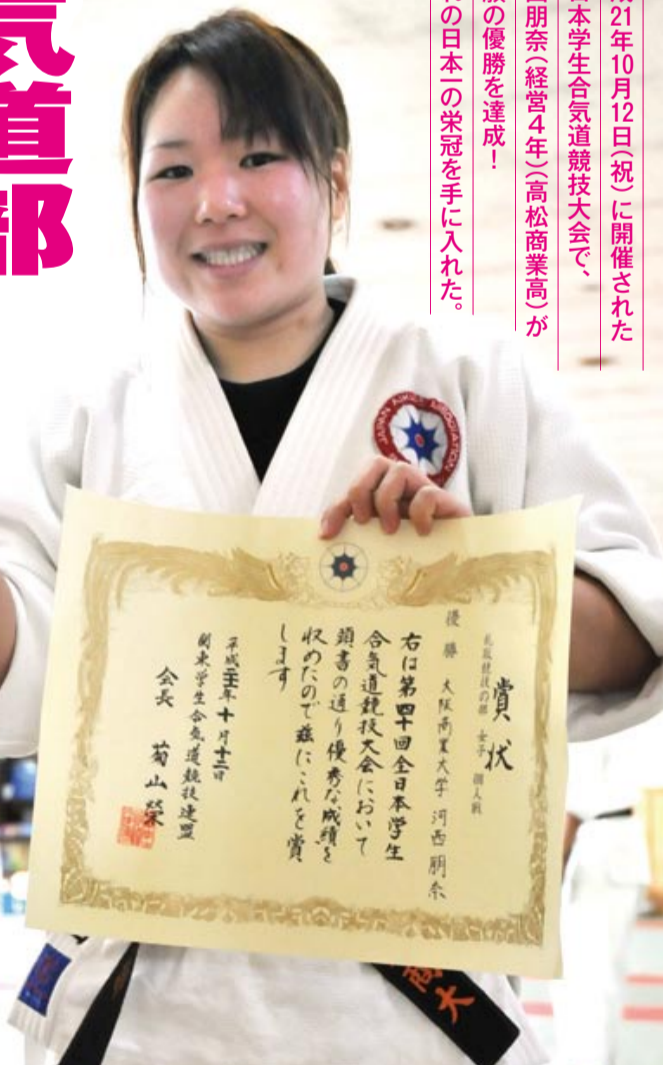 気道部
成21年10月12日(祝)に開催された
日本学生合気道競技大会で、
西朋奈(経営4年)(高松商業高)が
の優勝を達成!
の日本一の栄冠を手に入れた。
JAPAN AIKIDO ASSOCIATION
賞状
乱取競技の部 女子 個人戦
優勝 大阪商業大学 河西朋奈
右は第四十回全日本学生
合気道競技大会において
頭書の通り優秀な成績を
収めたので茲にこれを賞
します
平成二十一年十月十二日
関東学生合気道競技連盟
会長 菊山榮
商大